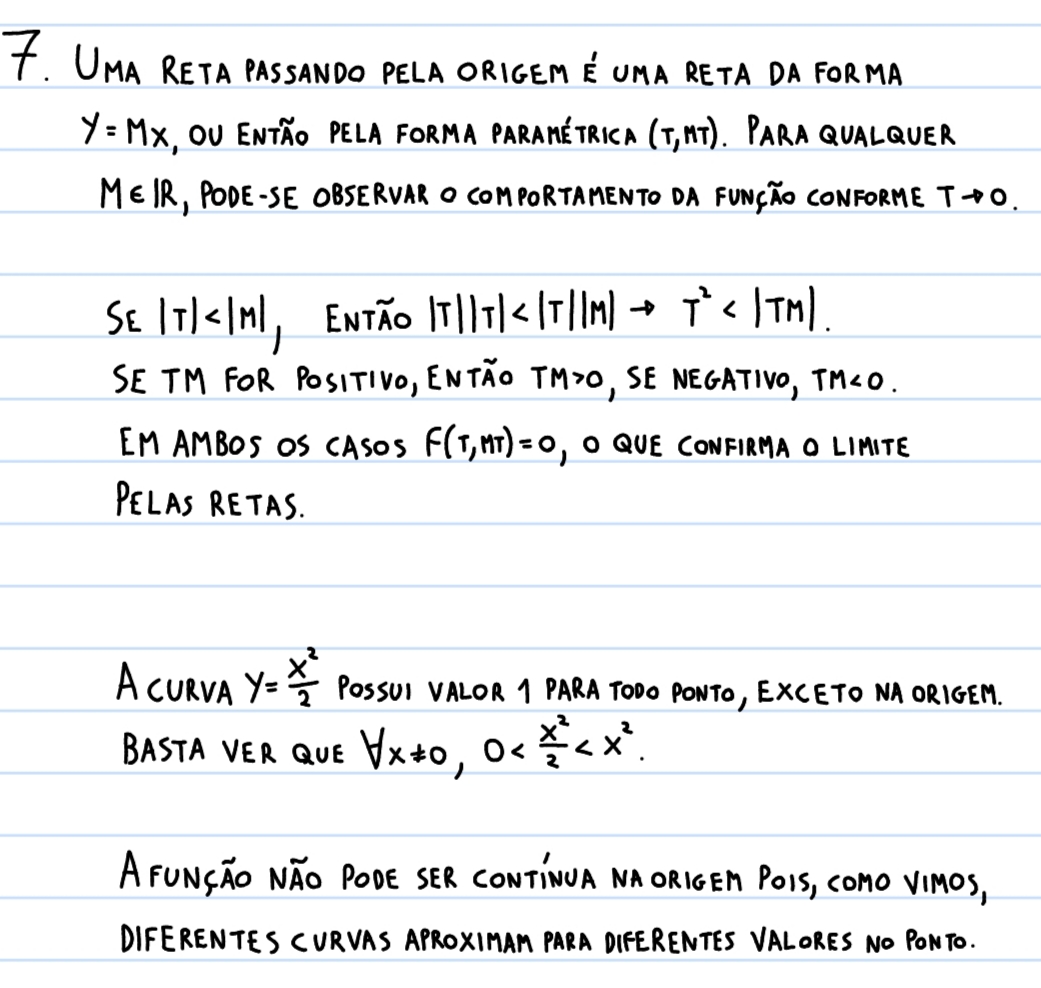 7. UMA RETA PASSANDO PELA ORIGEM É UMA RETA DA FORMA
Y=MX, OU ENTÃO PELA FORMA PARAMÉTRICA (T,MT). PARA QUALQUER
M∈ℝ, PODE-SE OBSERVAR O COMPORTAMENTO DA FUNÇÃO CONFORME T→0.
SE |T|<|M|, ENTÃO |T||T|<|T||M| → T²<|TM|.
SE TM FOR POSITIVO, ENTÃO TM>0, SE NEGATIVO, TM<0.
EM AMBOS OS CASOS F(T,MT)=0, O QUE CONFIRMA O LIMITE
PELAS RETAS.
A CURVA Y=X²/2 POSSUI VALOR 1 PARA TODO PONTO, EXCETO NA ORIGEM.
BASTA VER QUE ∀X≠0, 0<X²/2<X².
A FUNÇÃO NÃO PODE SER CONTÍNUA NA ORIGEM POIS, COMO VIMOS,
DIFERENTES CURVAS APROXIMAM PARA DIFERENTES VALORES NO PONTO.